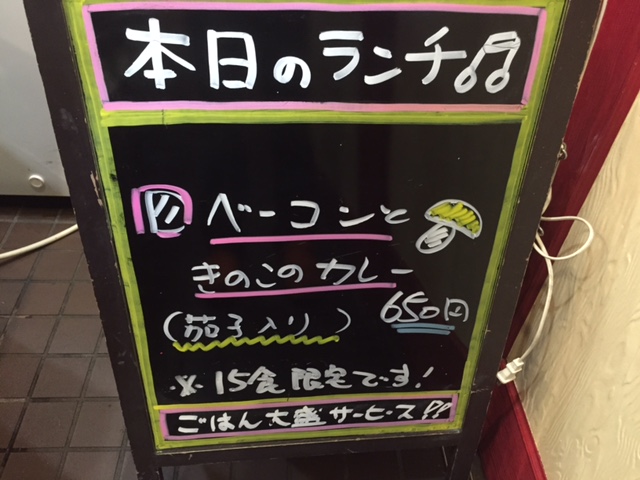 本日のランチ♫
ベーコンと
きのこのカレー
(茄子入り) 650円
※15食限定です!
ごはん大盛サービス!!